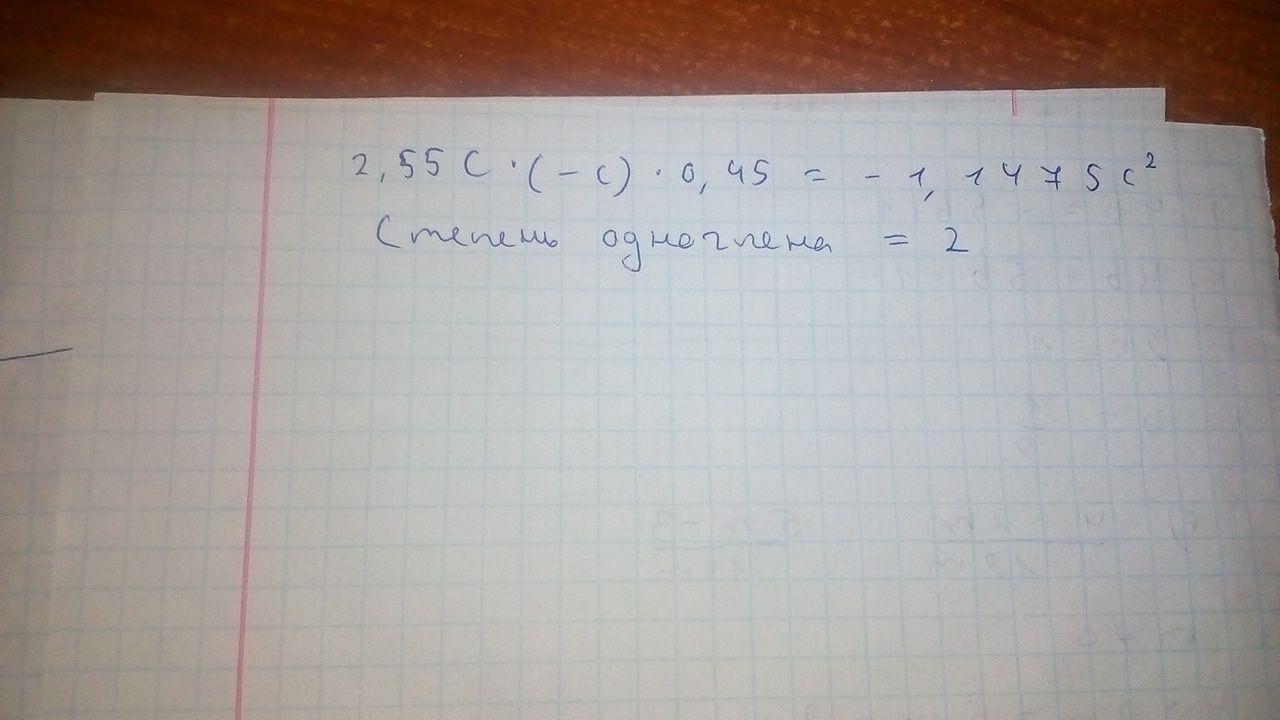 2,55c · (-c) · 0,45 = -1,1475c²
Степень одночлена = 2